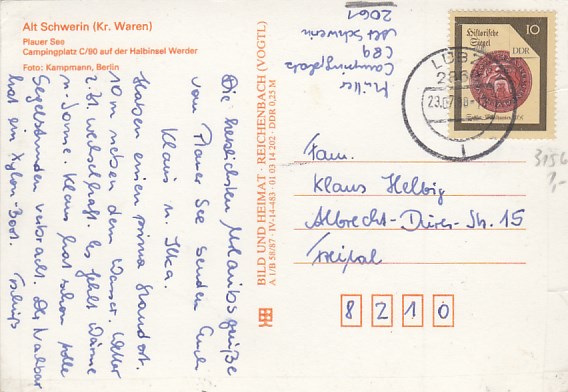 Alt Schwerin (Kr. Waren)
Plauer See
Campingplatz C/90 auf der Halbinsel Werder
Foto: Kampmann, Berlin
Die herzlichsten Urlaubsgrüße
vom Plauer See senden Euch
Klaus u. Ilka.
Haben einen prima Standort.
10 m neben dem Wasser. Wetter
z. Zt wechselhaft. Es fehlt Wärme
u. Sonne. Klaus hat schon tolle
Segelstunden verbracht. Der Nachbar
hat ein Xylon-Boot. Tschüß
BILD UND HEIMAT · REICHENBACH (VOGTL)
A 1/B 58/87 · IV-14-483 · 01 03 14 202 · DDR 0,25 M
Müller
Campingplatz
C89
Alt Schwerin
2061
Historische
Siegel
10
DDR
LÜBZ
286
23.07.
Fam.
Klaus Helbig
Albrecht-Dürer-Str. 15
Freital
8210
3156
1,-